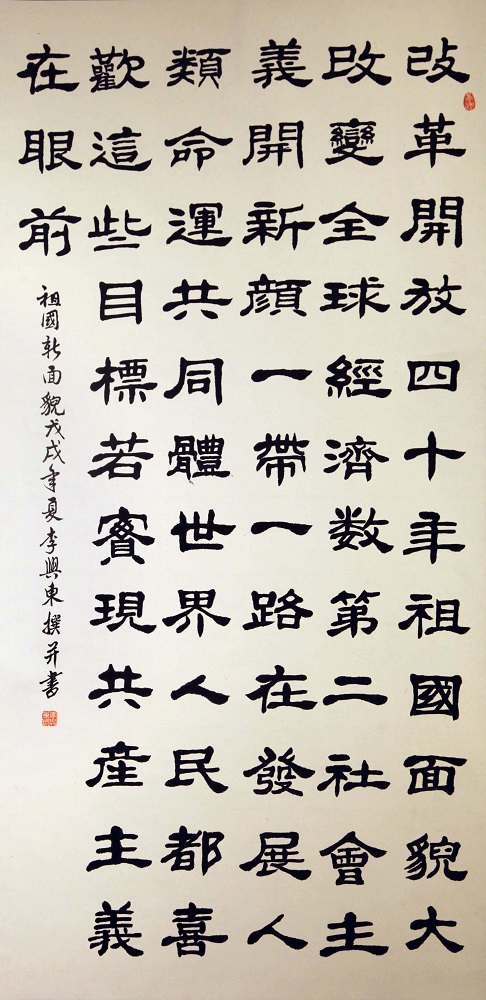 改革開放四十年祖國面貌大
改變全球經濟数第二社會主
義開新顔一帶一路在發展人
類命運共同體世界人民都喜
歡這些目標若實現共産主義
在眼前
祖國新面貌戊戌年夏李興東撰并書